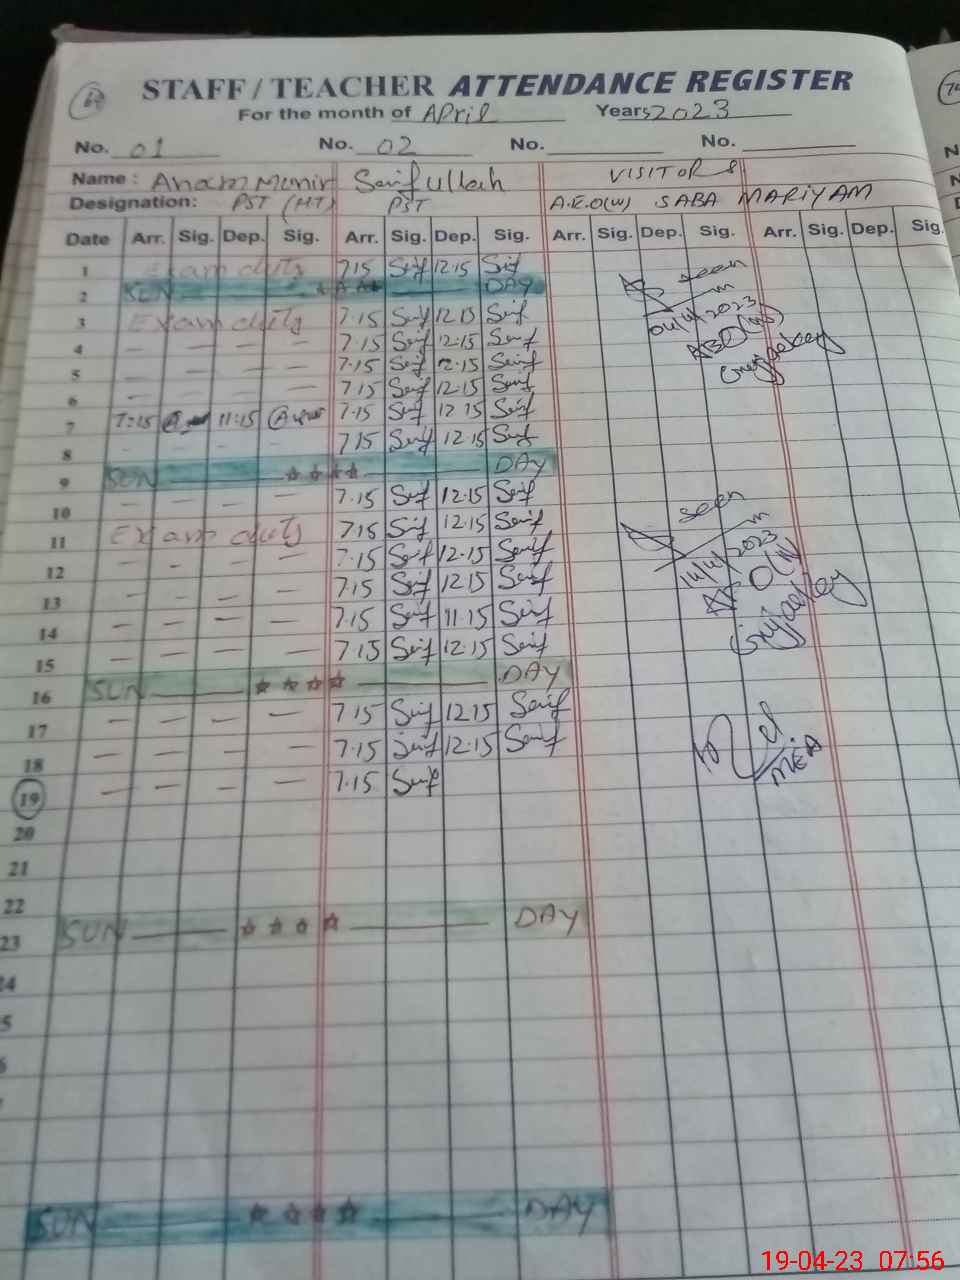 STAFF / TEACHER ATTENDANCE REGISTER
For the month of April Years 2023
No. 01 No. 02 No. No.
Name : Anam Munir Saif Ullah VISITORS
Designation: PST (HT) PST A.E.O(W) SABA MARIYAM
Date Arr. Sig. Dep. Sig. Arr. Sig. Dep. Sig. Arr. Sig. Dep. Sig. Arr. Sig. Dep. Sig.
1 Exam duty 7.15 Saif 12.15 Saif seen
2 SUN DAY
3 Exam duty 7.15 Saif 12.15 Saif 04/4/2023
4 — — — — 7.15 Saif 12.15 Saif
5 — — — — 7.15 Saif 12.15 Saif
6 — 7.15 Saif 12.15 Saif
7 7:15 11:15 7.15 Saif 12.15 Saif
8 7.15 Saif 12.15 Saif
9 SUN ☆☆☆☆ DAY
10 — — — 7.15 Saif 12.15 Saif seen
11 Exam duty 7.15 Saif 12.15 Saif
12 — - — — 7.15 Saif 12.15 Saif 14/4/2023
13 — — — — 7.15 Saif 12.15 Saif
14 — — — — 7.15 Saif 11.15 Saif
15 — — — — 7.15 Saif 12.15 Saif
16 SUN ☆☆☆☆ DAY
17 — — — — 7.15 Saif 12.15 Saif
18 — — — — 7.15 Saif 12.15 Saif MEA
19 — — — — 7.15 Saif
20
21
22
23 SUN ☆☆☆☆ DAY
SUN ☆☆☆☆ DAY
19-04-23 07:56